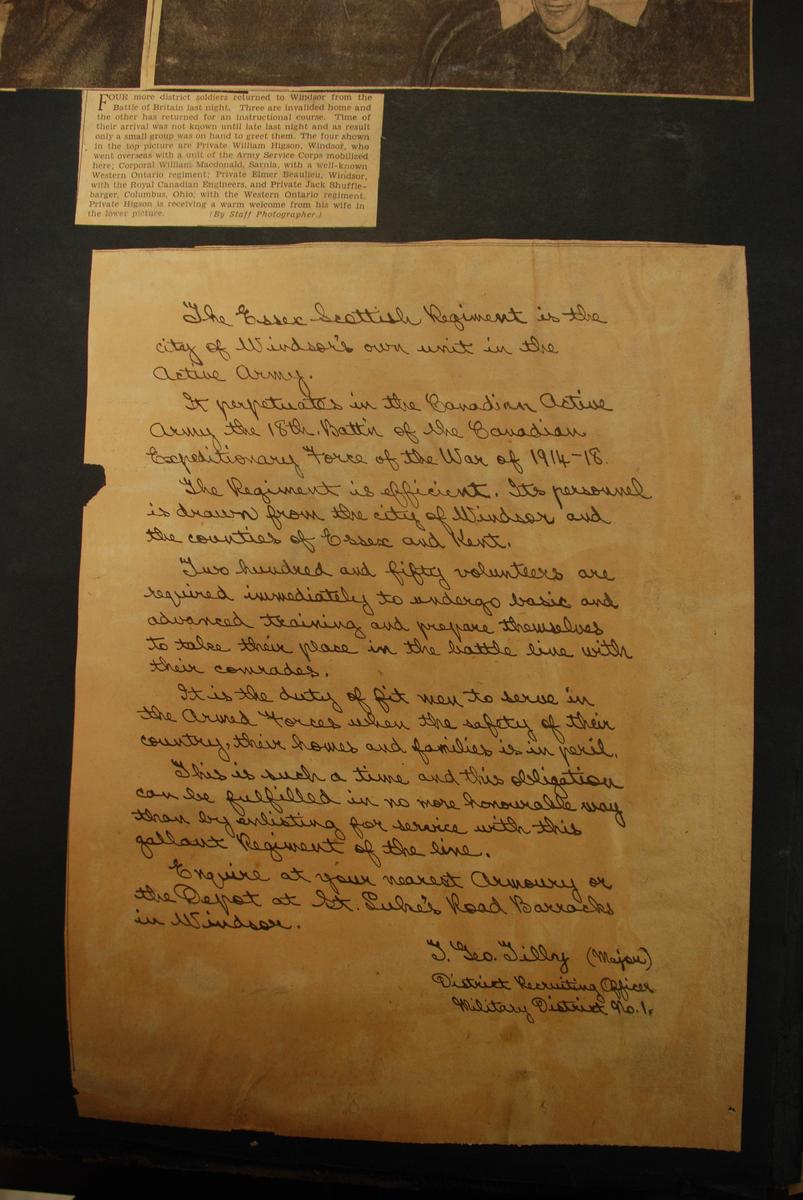 FOUR more district soldiers returned to Windsor from the
Battle of Britain last night. Three are invalided home and
the other has returned for an instructional course. Time of
their arrival was not known until late last night and as result
only a small group was on hand to greet them. The four shown
in the top picture are Private William Higson, Windsor, who
went overseas with a unit of the Army Service Corps mobilized
here; Corporal William Macdonald, Sarnia, with a well-known
Western Ontario regiment; Private Elmer Beaulieu, Windsor,
with the Royal Canadian Engineers, and Private Jack Shuffle-
barger, Columbus, Ohio, with the Western Ontario regiment.
Private Higson is receiving a warm welcome from his wife in
the lower picture. (By Staff Photographer.)
The Essex Scottish Regiment is the
city of Windsor's own unit in the
Active Army.
It perpetuates in the Canadian Active
Army the 18th. Batt'n of the Canadian
Expeditionary Force of the War of 1914-18.
The Regiment is efficient. Its personnel
is drawn from the city of Windsor and
the counties of Essex and Kent.
Two hundred and fifty volunteers are
required immediately to undergo basic and
advanced training and prepare themselves
to take their place in the battle line with
their comrades.
It is the duty of fit men to serve in
the Armed Forces when the safety of their
country, their homes and families is in peril.
This is such a time and this obligation
can be fulfilled in no more honourable way
than by enlisting for service with this
gallant Regiment of the line.
Enquire at your nearest Armoury or
the Depot at St. Luke's Road Barracks
in Windsor.
T. Geo. Tilly (Major)
District Recruiting Officer
Military District No. 1.